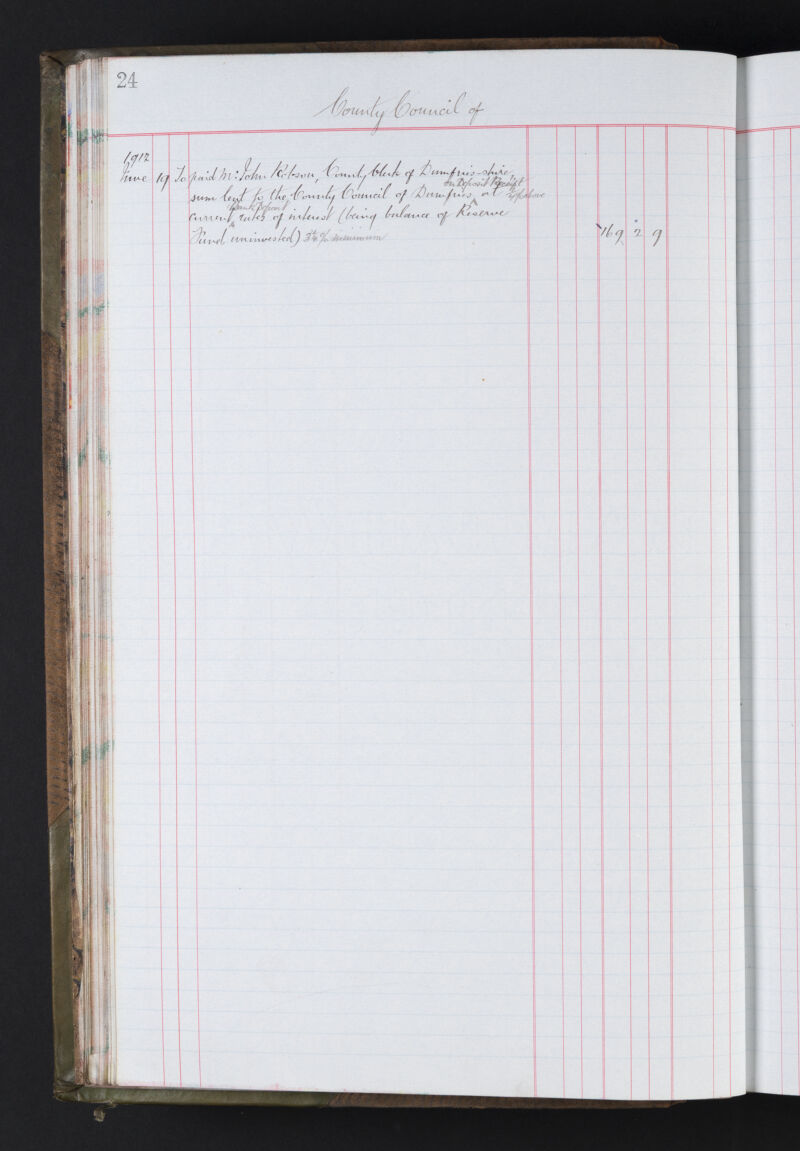 24
County Council of
1912
June 19 To paid Mr. John Robson, County Clerk of Dumfries-shire,
on Deposit Receipt
sum lent to the County Council of Dumfries at
Bank Deposit
current rates of interest (being balance of Reserve
Fund uninvested) minimum 169 2 9